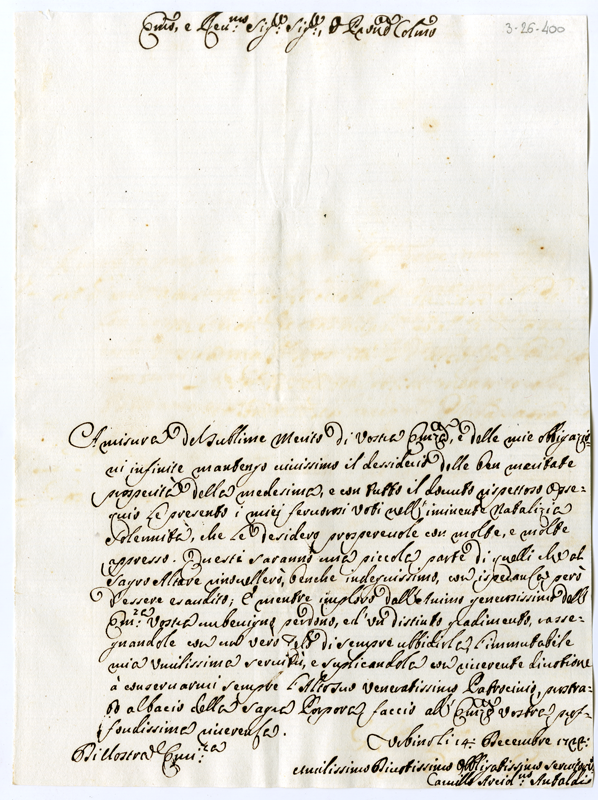 Emo, e Reu:mo Sig:re Sig:re, e Pron Colmo
3-26-400
A misura del sublime Merito di Vostra Emza, e delle mie obligazio-
ni infinite mantengo viuissimo il dessiderio delle ben meritate
prosperità della medesima, e con tutto il douuto rispettoso osse-
quio Le presento i miei feruorosi Voti nell'iminente Natalizia
Solennità, che Le desidero prosperevole con molte, e molte
appresso. Questi saranno una piccola parte di quelli che al
Sagro Altare rinouellerò, benche indegnissimo, con isperanza però
d'essere esaudito; E mentre imploro dall'Animo generosissimo dell'
Em:za Vostra un benigno perdono, ed un distinto gradimento, rasse-
gnandole con un vero di sempre ubbidirla l'immutabile
mia umilissima seruitù, e suplicandola con riuerente diuotione
à conseruarmi sempre l'Alto suo veneratissimo Patrocinio, prostra-
to al bacio della Sagra Porpora faccio all'Emza Vostra prof-
fondissima riuerenza.
Urbino li 14: Decembre
Di Vostra Em:za
Umilissimo Diuotissimo Obligatissimo Seruitore
Camillo Arcid:no Antaldi